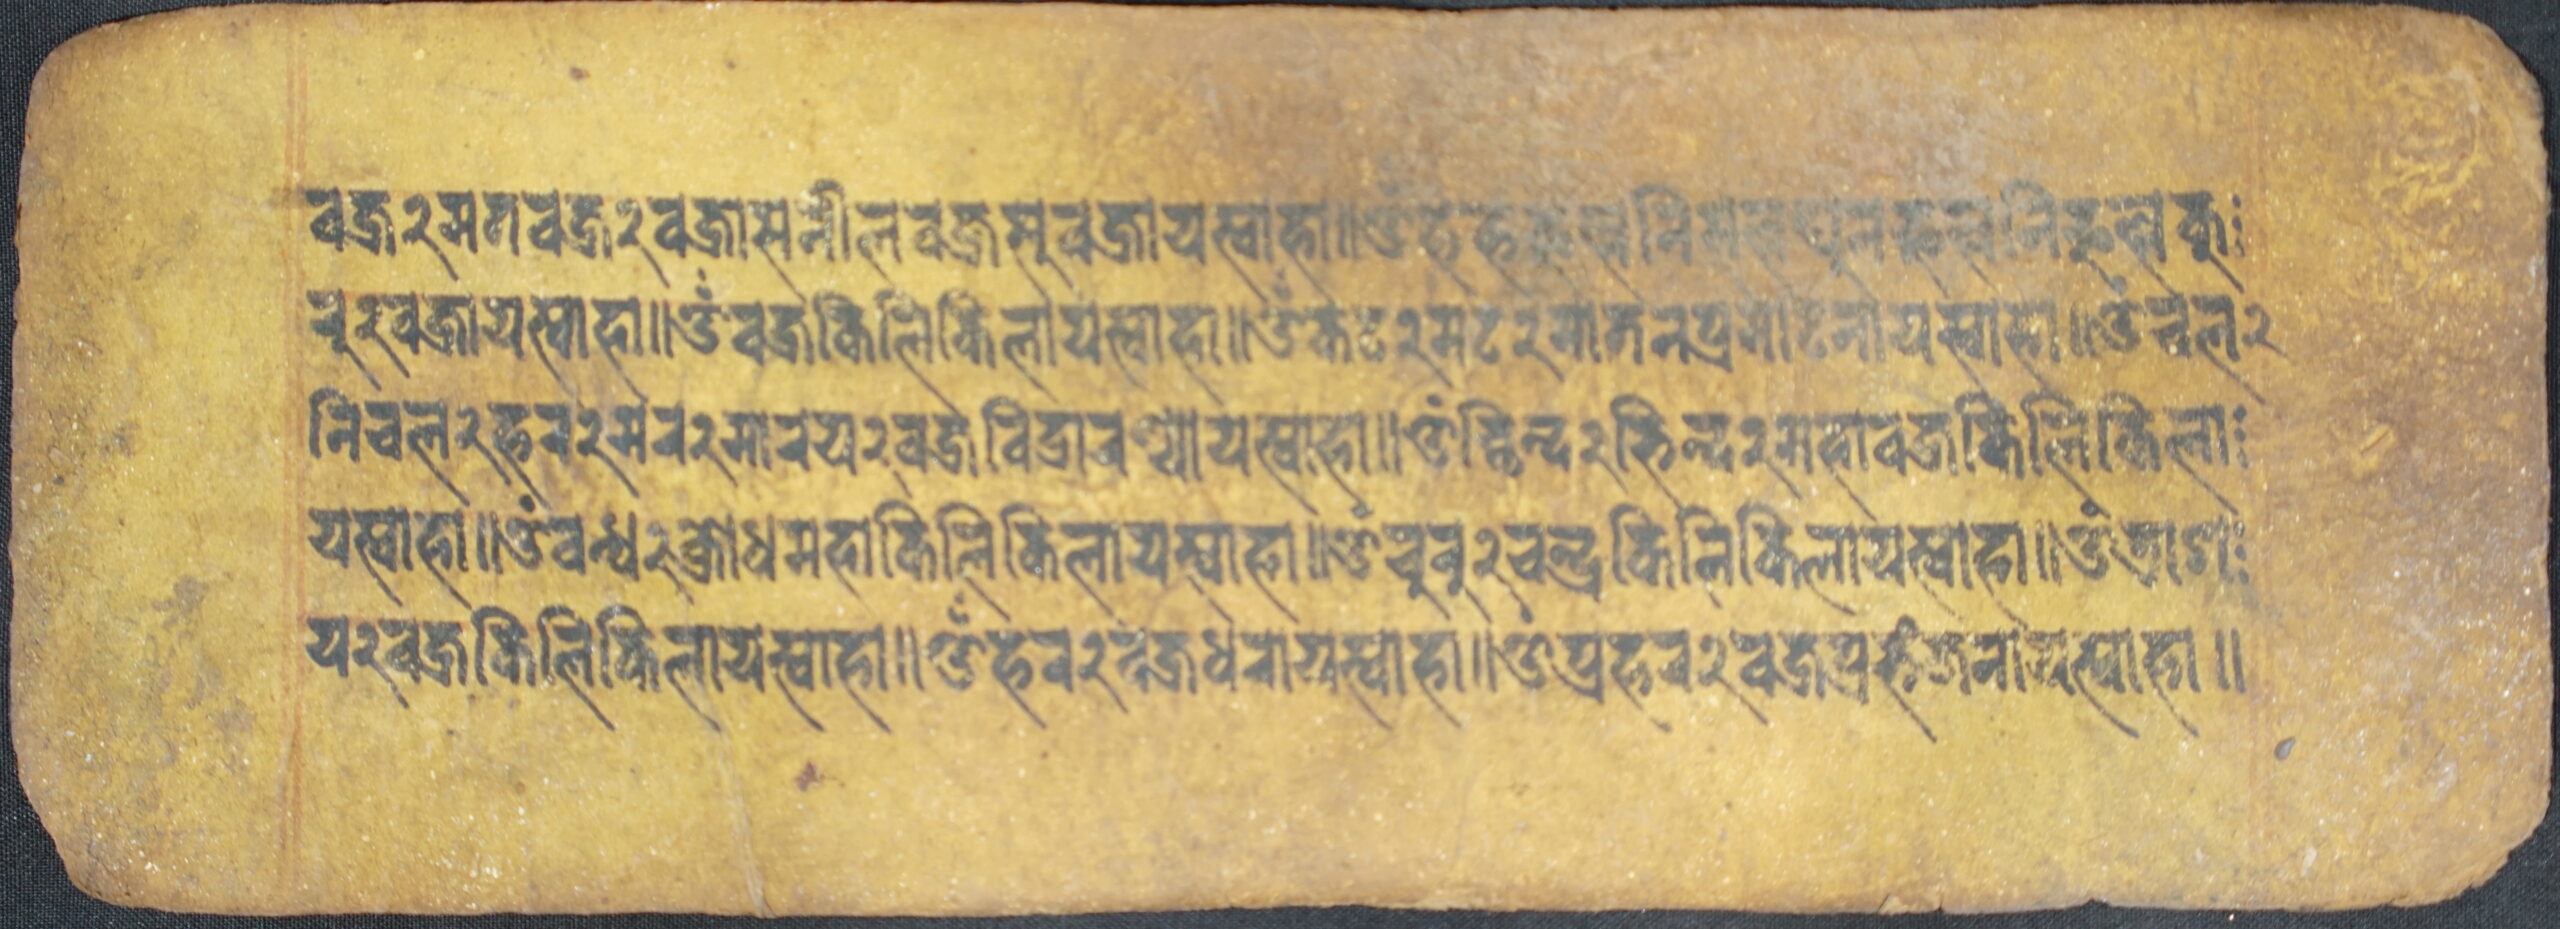 वज्र२मतवज्र२वज्रासनीलवज्रसुवज्रायस्वाहा॥ॐ
रु२वज्रायस्वाहा॥ॐवज्रकिलिकिलायस्वाहा॥ॐकट२मट२माटनप्रमाटनायस्वाहा॥ॐचल२
निचल२हर२मर२मारय२वज्रविद्रारण्यायस्वाहा॥ॐछिन्द२भिन्द२महावज्रकिलिकिला
यस्वाहा॥ॐबन्ध२क्रोधमहाकिलिकिलायस्वाहा॥ॐचुरु२चन्द्रकिलिकिलायस्वाहा॥ॐत्राश
य२वज्रकिलिकिलायस्वाहा॥ॐहर२वज्रधरायस्वाहा॥ॐप्रहर२वज्रप्रभंजनायस्वाहा॥